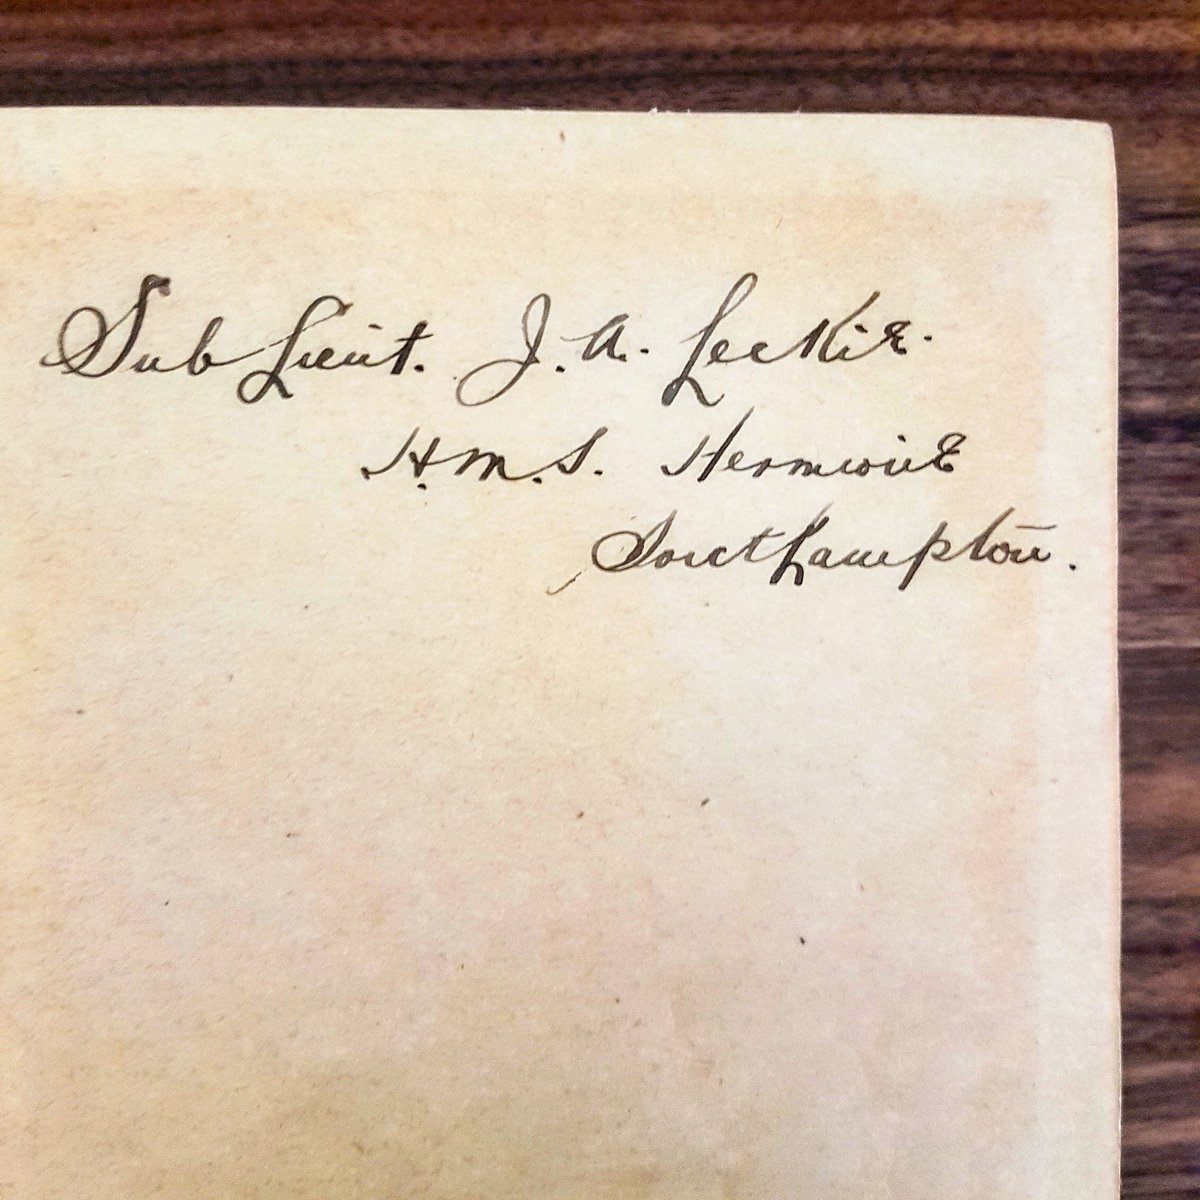 Sub Lieut. J. A. Leckie.
H.M.S. Hermione
Southampton.